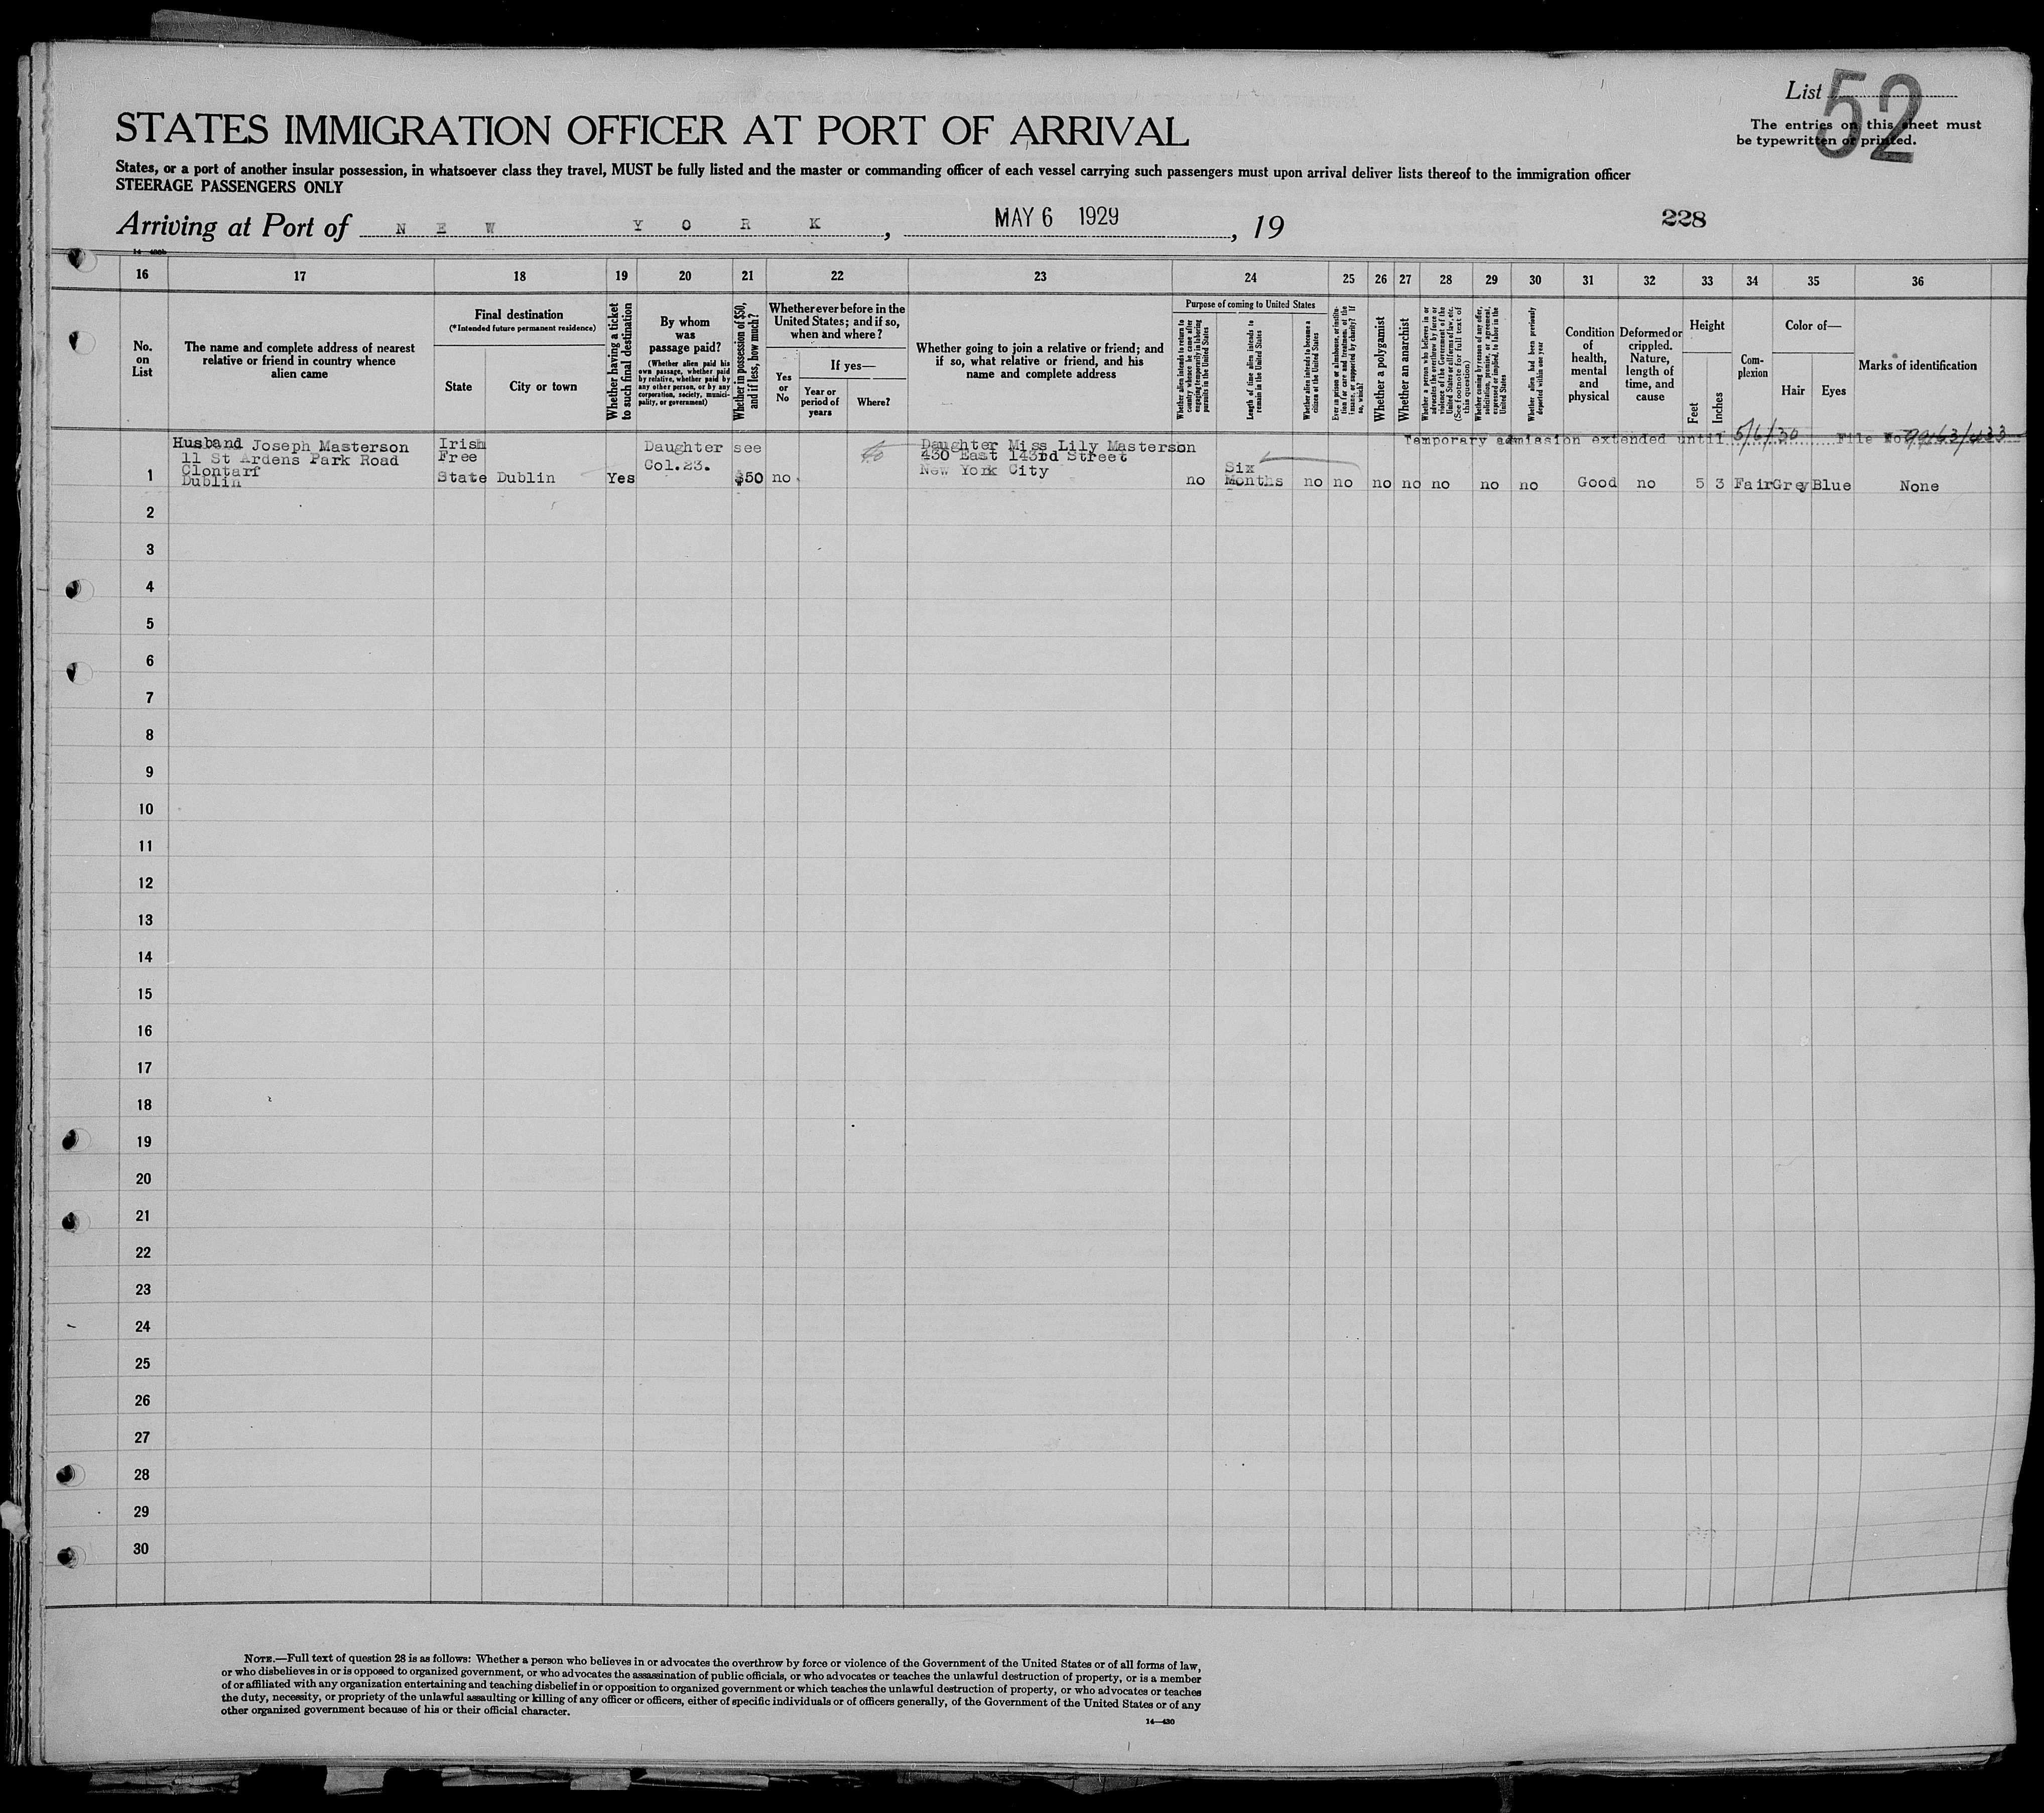 List 52
The entries on this sheet must
be typewritten or printed.
STATES IMMIGRATION OFFICER AT PORT OF ARRIVAL
States, or a port of another insular possession, in whatsoever class they travel, MUST be fully listed and the master or commanding officer of each vessel carrying such passengers must upon arrival deliver lists thereof to the immigration officer
STEERAGE PASSENGERS ONLY
Arriving at Port of NEW YORK, MAY 6 1929, 19
228
16 17 18 19 20 21 22 23 24 25 26 27 28 29 30 31 32 33 34 35 36
No.
on
List
The name and complete address of nearest
relative or friend in country whence
alien came
Final destination
(*Intended future permanent residence)
State
City or town
Whether having a ticket
to such final destination
By whom
was
passage paid?
(Whether alien paid his
own passage, whether paid
by relative, whether paid by
any other person, or by any
corporation, society, munici-
pality, or government)
Whether in possession of $50,
and if less, how much?
Whether ever before in the
United States; and if so,
when and where?
Yes
or
No
If yes—
Year or
period of
years
Where?
Whether going to join a relative or friend; and
if so, what relative or friend, and his
name and complete address
Purpose of coming to United States
Whether alien intends to return to
country whence he came after
engaging temporarily in laboring
pursuits in the United States
Length of time alien intends to
remain in the United States
Whether alien intends to become a
citizen of the United States
Ever in prison or almshouse, or institu-
tion for care and treatment of the
insane, or supported by charity? If
so, which?
Whether a polygamist
Whether an anarchist
Whether a person who believes in or
advocates the overthrow by force or
violence of the Government of the
United States or all forms of law, etc.
(See footnote for full text of
this question)
Whether coming by reason of any offer,
solicitation, promise, or agreement,
expressed or implied, to labor in the
United States
Whether alien had been previously
deported within one year
Condition
of
health,
mental
and
physical
Deformed or
crippled.
Nature,
length of
time, and
cause
Height
Feet
Inches
Com-
plexion
Color of—
Hair
Eyes
Marks of identification
Temporary admission extended until 5/6/30 File No.
Husband Joseph Masterson
11 St Ardens Park Road
Clontarf
Dublin
Irish
Free
State Dublin
Yes
Daughter see
Col.23.
$50
no
Daughter Miss Lily Masterson
430 East 143rd Street
New York City
no
Six
Months
no no no no no no no Good no 5 3 Fair Grey Blue None
1
2
3
4
5
6
7
8
9
10
11
12
13
14
15
16
17
18
19
20
21
22
23
24
25
26
27
28
29
30
NOTE.—Full text of question 28 is as follows: Whether a person who believes in or advocates the overthrow by force or violence of the Government of the United States or of all forms of law,
or who disbelieves in or is opposed to organized government, or who advocates the assassination of public officials, or who advocates or teaches the unlawful destruction of property, or is a member
of or affiliated with any organization entertaining and teaching disbelief in or opposition to organized government or which teaches the unlawful destruction of property, or who advocates or teaches
the duty, necessity, or propriety of the unlawful assaulting or killing of any officer or officers, either of specific individuals or of officers generally, of the Government of the United States or of any
other organized government because of his or their official character.
14—430